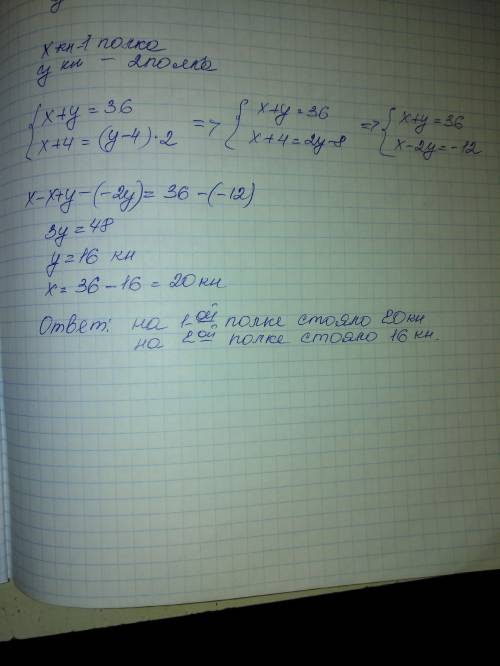 x кн - 1 полка
y кн - 2 полка
{x+y=36 x+4=(y-4)·2 => {x+y=36 x+4=2y-8 => {x+y=36 x-2y=-12
x-x+y-(-2y)=36-(-12)
3y=48
y=16 кн
x=36-16=20кн
Ответ: на 1-ой полке стояло 20кн
на 2-ой полке стояло 16 кн.